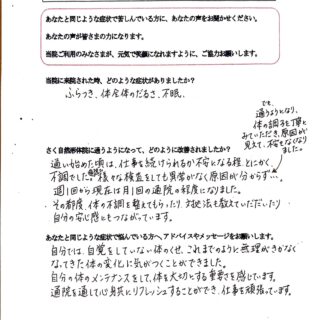 あなたと同じような症状で苦しんでいる方に、あなたの声をお聞かせください。
あなたの声が皆さまの力になります。
当院ご利用のみなさまが、元気で笑顔になれますように、ご協力お願いします。
当院に来院された時、どのような症状がありましたか？
ふらつき、体全体のだるさ、不眠。
さく自然形体院に通うようになって、どのように改善されましたか？
でも、
通うようになり、
体の調子を丁寧に
みていただき、原因が
見えて、不安もなくなり
ました。
通い始めた頃は、仕事を続けられるか不安になる程、とにかく
不調でした。様々な検査をしても異常がなく原因が分からず…。
週1回から現在は月1回の通院の程度になりました。
その都度、体の不調を整えてもらったり、対処法も教えていただいたり
自分の安心感にもつながっています。
あなたと同じような症状で悩んでいる方へ、アドバイスやメッセージをお願いします。
自分では、自覚をしていない体のくせ、これまでのように無理がきかなく
なってきた体の変化に気がつくことができました。
自分の体のメンテナンスをして、体を大切にする重要さを感じています。
通院を通して心身共にリフレッシュすることができ、仕事を頑張っています。